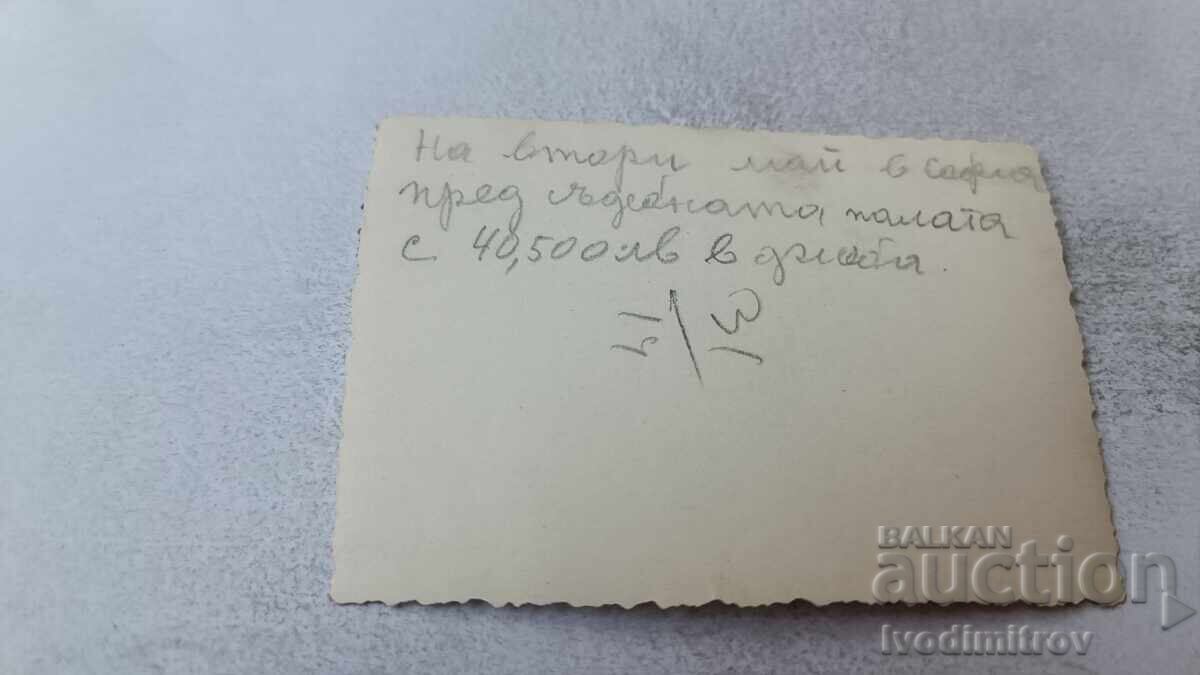 На втори май в София
пред съдебната палата
с 40,500 лв в джоба.
BALKAN
auction
Ivodimitrov